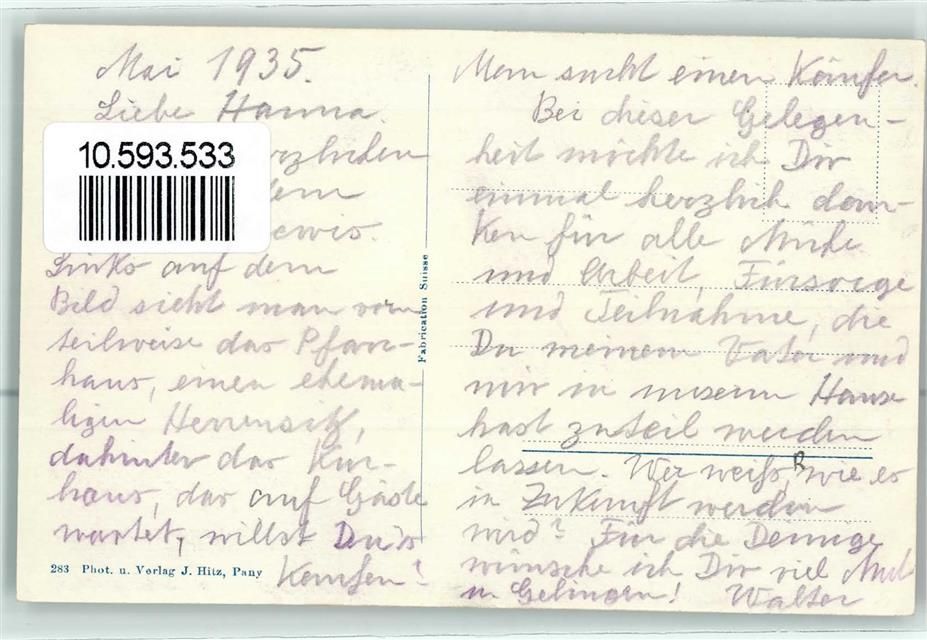 Mai 1935.
Liebe Hanna.
10.593.533
Links auf dem
Bild sieht man vorn
teilweise das Pfarr-
haus, einen ehema-
ligen Herrensitz,
dahinter das Kur-
haus, das auf Gäste
wartet, willst Du's
kaufen?
283 Phot. u. Verlag J. Hitz, Pany
Fabrication Suisse
Man sucht einen Käufer.
Bei dieser Gelegen-
heit möchte ich Dir
einmal herzlich dan-
ken für alle Mühe
und Arbeit, Fürsorge
und Teilnahme, die
Du meinem Vater und
mir in unserm Hause
hast zuteil werden
lassen. Wer weiß, wie es
in Zukunft werden
wird? Für die Deinige
wünsche ich Dir viel Mut
u. Gelingen! Walter